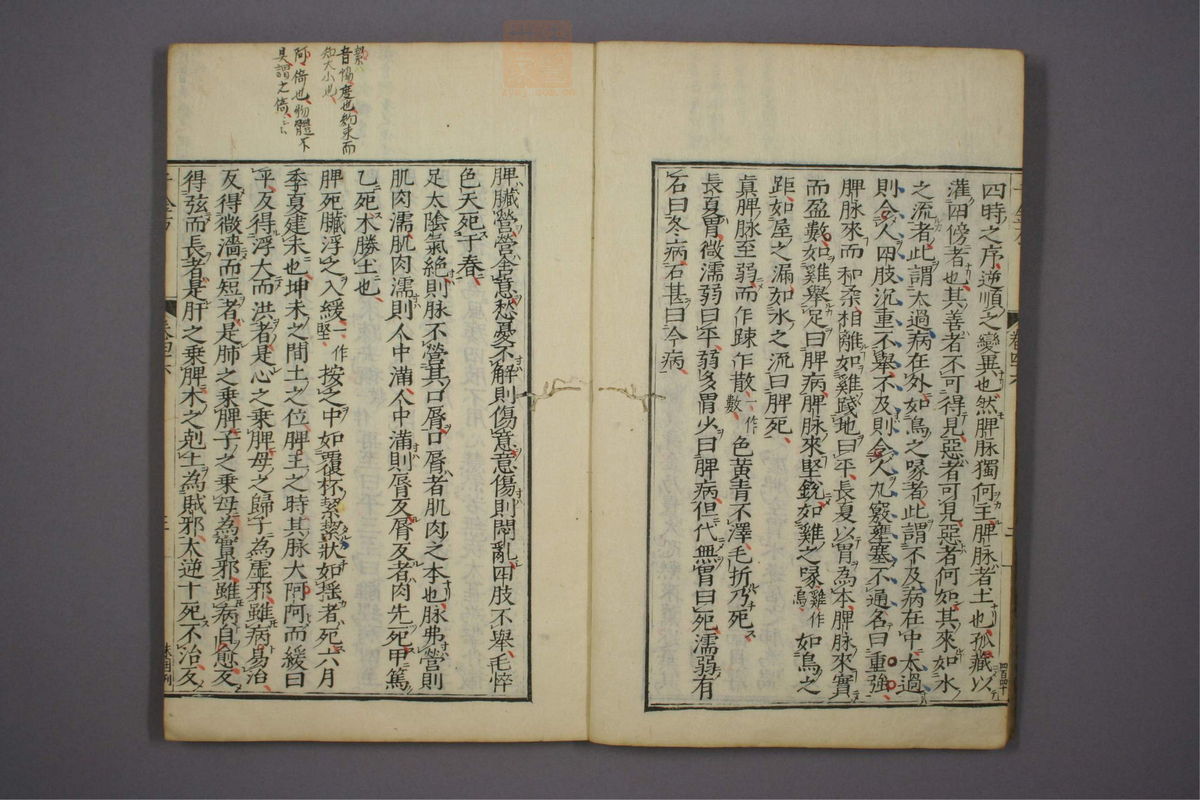 四時之序逆順之變異也然脾脉獨何主脾脉者土也孤藏以
灌四傍者也其善者不可得見惡者可見惡者何如其來如水
之流者此謂太過病在外如鳥之喙者此謂不及病在中太過
則令人四肢沉重不舉不及則令人九竅壅塞不通名曰重強
脾脉來而和柔相離如雞踐地曰平長夏以胃為本脾脉來實
而盈數如雞舉足曰脾病脾脉來堅銳如雞之喙雞一作鳥如鳥之
距如屋之漏如水之流曰脾死
真脾脉至弱而乍踈乍散一作數色黃青不澤毛折乃死
長夏胃微濡弱曰平弱多胃少曰脾病但代無胃曰死濡弱有
石曰冬病石甚曰今病
脾臟營營舍意愁憂不解則傷意意傷則悶亂四肢不舉毛悴
色夭死于春
足太陰氣絕則脉不營其口脣口脣者肌肉之本也脉弗營則
肌肉濡肌肉濡則人中滿人中滿則脣反脣反者肉先死甲篤
乙死木勝土也
脾死臟浮之入緩一作堅按之中如覆杯絜絜狀如揺者死六月
季夏建未也坤未之間土之位脾王之時其脉大阿阿而緩曰
平反得浮大而洪者是心之乘脾母之歸子為虛邪雖病易治
反得微濇而短者是肺之乘脾子之乘母為實邪雖病自愈反
得弦而長者是肝之乘脾木之剋土為賊邪大逆十死不治反
絜
音
度也約束而
知大小也
阿倚也物體不
具謂之倚云々